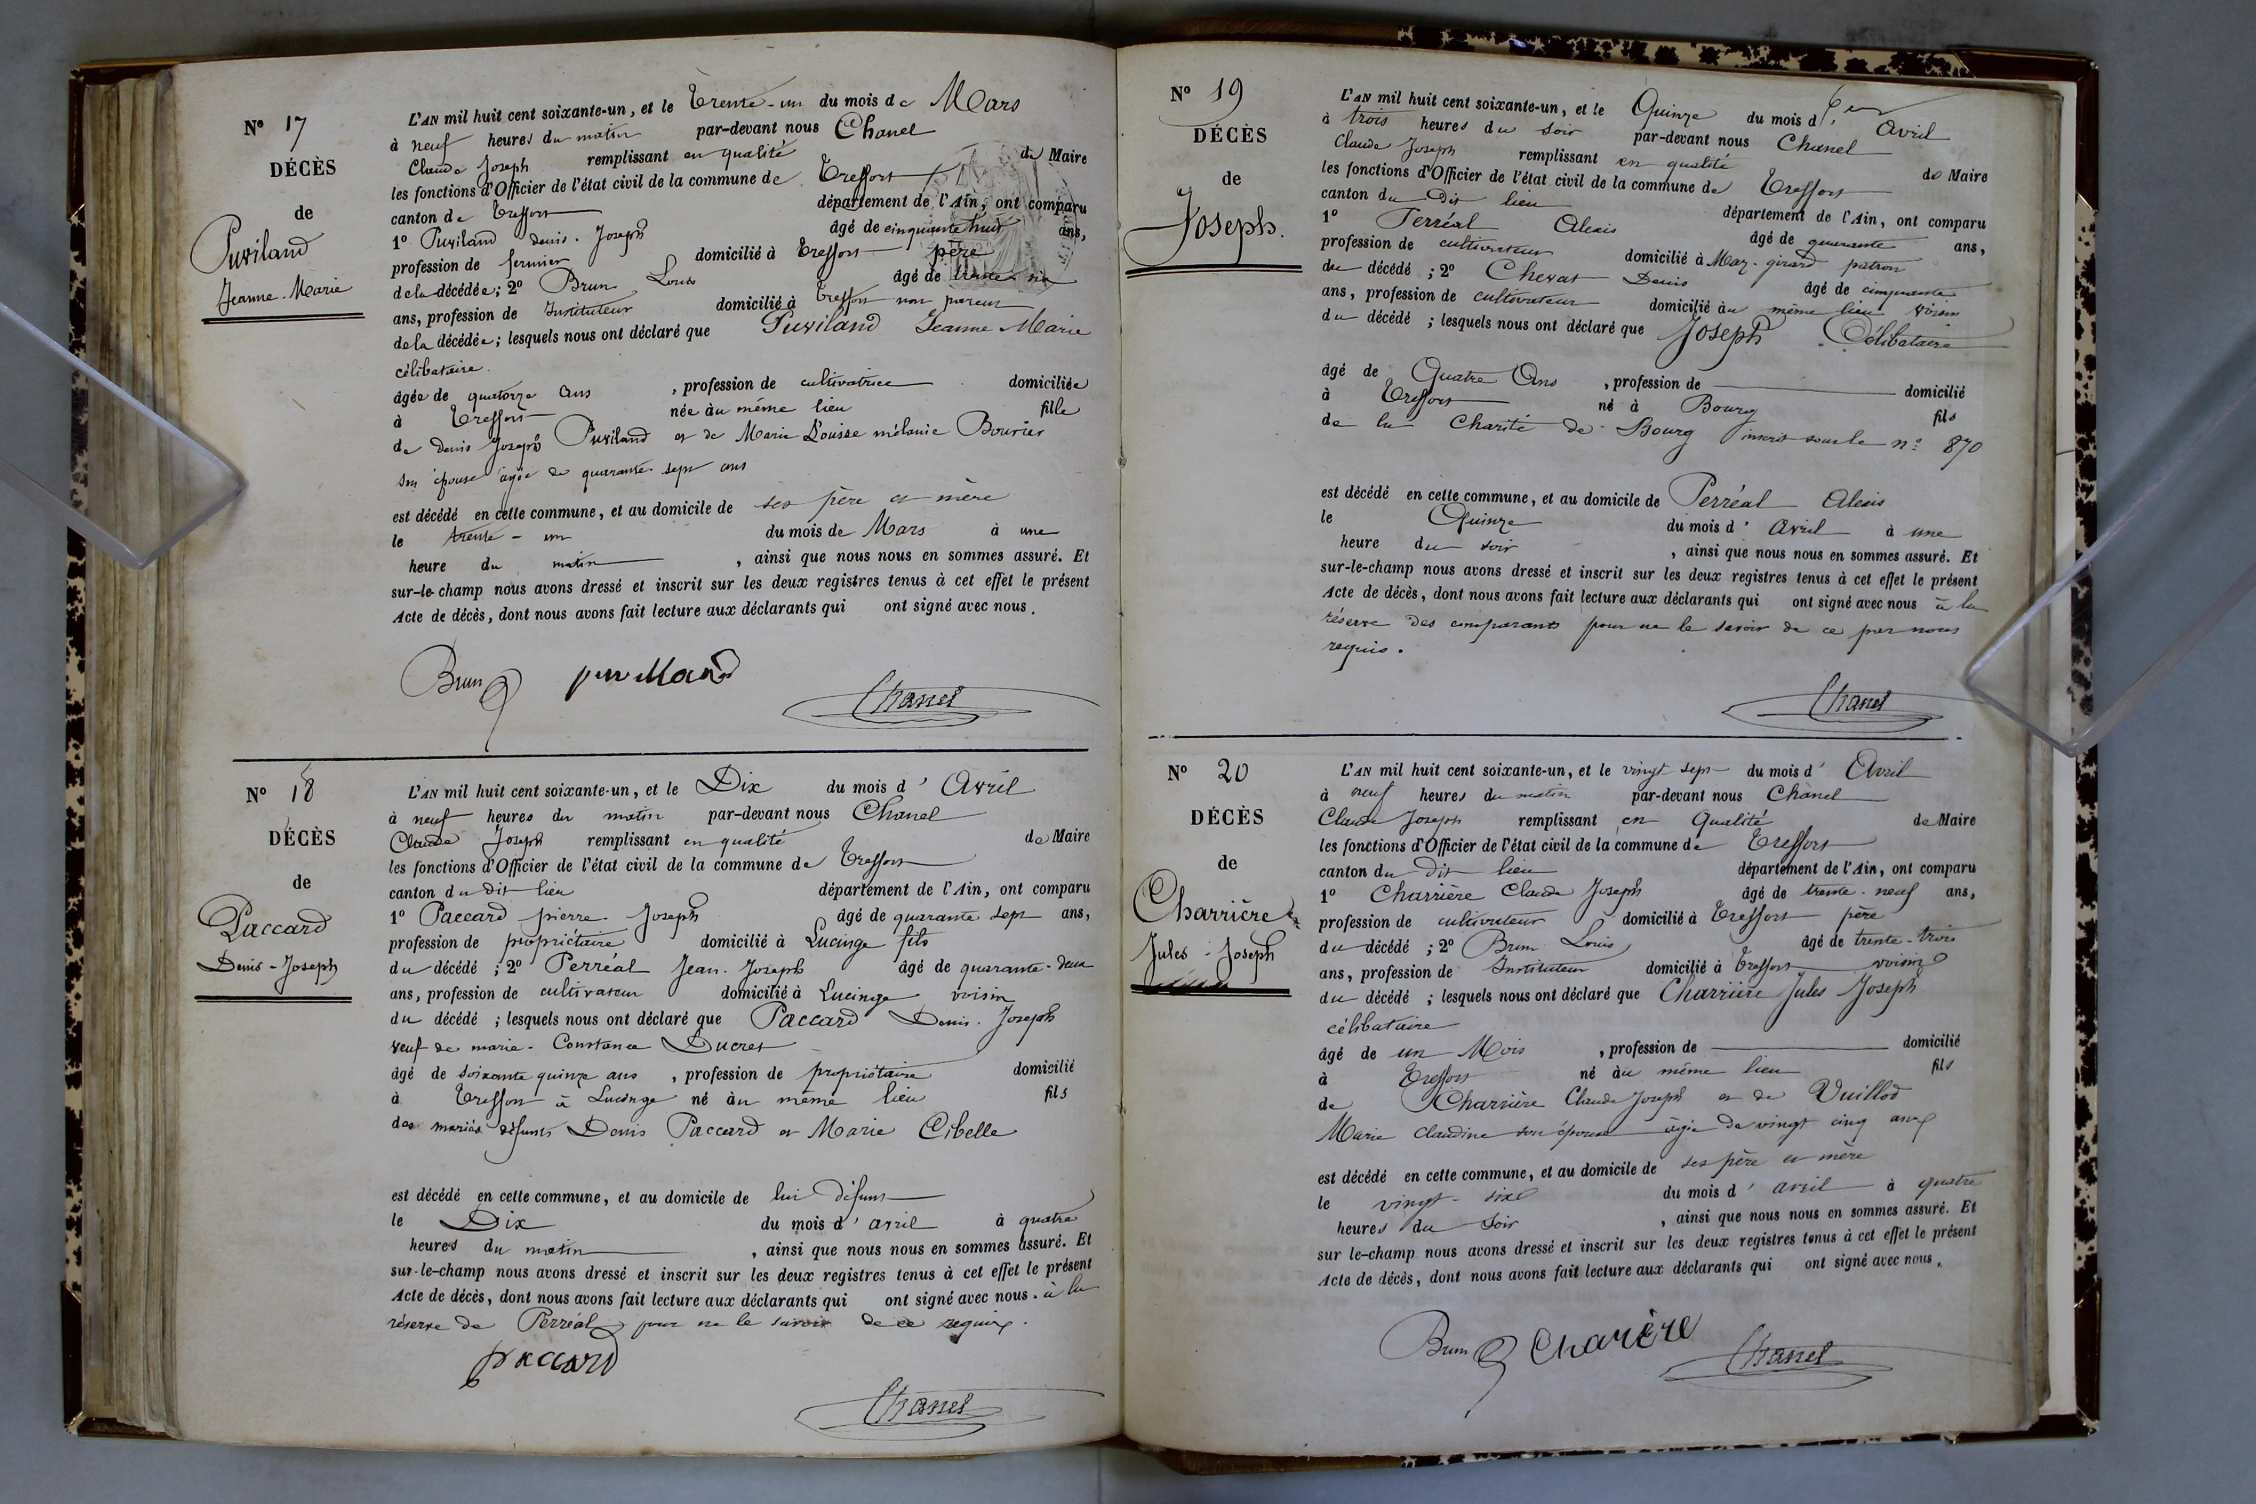 N° 17
DÉCÈS
de
Puviland
Jeanne-Marie
L'AN mil huit cent soixante-un, et le Trente-un du mois de Mars
à neuf heures du matin par-devant nous Chanel
Claude Joseph remplissant en qualité de Maire
les fonctions d'Officier de l'état civil de la commune de Treffort
canton de Treffort département de l'Ain, ont comparu
1° Puviland denis-Joseph âgé de cinquante huit ans,
profession de fermier domicilié à Treffort père
de la décédée; 2° Brun Louis âgé de trente
ans, profession de Instituteur domicilié à Treffort non parent
de la décédée; lesquels nous ont déclaré que Puviland Jeanne Marie
célibataire.
âgée de quatorze ans, profession de cultivatrice domiciliée
à Treffort née au même lieu fille
de Denis Joseph Puviland et de Marie Louise mélanie Bouvier
son épouse âgée de quarante sept ans
est décédé en cette commune, et au domicile de ses père et mère
le trente-un du mois de Mars à une
heure du matin, ainsi que nous nous en sommes assuré. Et
sur-le-champ nous avons dressé et inscrit sur les deux registres tenus à cet effet le présent
Acte de décès, dont nous avons fait lecture aux déclarants qui ont signé avec nous.
Brun puvilland
Chanel
N° 18
DÉCÈS
de
Paccard
Denis-Joseph
L'AN mil huit cent soixante-un, et le Dix du mois d'Avril
à neuf heures du matin par-devant nous Chanel
Claude Joseph remplissant en qualité de Maire
les fonctions d'Officier de l'état civil de la commune de Treffort
canton du dit lieu département de l'Ain, ont comparu
1° Paccard pierre-Joseph âgé de quarante sept ans,
profession de propriétaire domicilié à Lucinge fils
du décédé; 2° Perréal Jean-Joseph âgé de quarante-deux
ans, profession de cultivateur domicilié à Lucinge voisin
du décédé; lesquels nous ont déclaré que Paccard Denis-Joseph
veuf de marie-Constance Ducret
âgé de soixante quinze ans, profession de propriétaire domicilié
à Treffort à Lucinge né au même lieu fils
des mariés défunts Denis Paccard et Marie Cibelle
est décédé en cette commune, et au domicile de lui défunt
le Dix du mois d'avril à quatre
heures du matin, ainsi que nous nous en sommes assuré. Et
sur-le-champ nous avons dressé et inscrit sur les deux registres tenus à cet effet le présent
Acte de décès, dont nous avons fait lecture aux déclarants qui ont signé avec nous. à la
réserve de Perréal pour ne le savoir de ce requis.
paccard
Chanel
N° 19
DÉCÈS
de
Joseph.
L'AN mil huit cent soixante-un, et le Quinze du mois d'Avril
à trois heures du soir par-devant nous Chanel
Claude Joseph remplissant en qualité de Maire
les fonctions d'Officier de l'état civil de la commune de Treffort
canton du Dit lieu département de l'Ain, ont comparu
1° Perréal Alexis âgé de quarante ans,
profession de cultivateur domicilié à Mas-girard patron
du décédé; 2° Chevat Denis âgé de cinquante
ans, profession de cultivateur domicilié au même lieu voisin
du décédé; lesquels nous ont déclaré que Joseph Célibataire
âgé de Quatre Ans, profession de domicilié
à Treffort né à Bourg fils
de la Charité de Bourg inscrit sous le n° 870
est décédé en cette commune, et au domicile de Perréal Alexis
le Quinze du mois d'Avril à une
heure du soir, ainsi que nous nous en sommes assuré. Et
sur-le-champ nous avons dressé et inscrit sur les deux registres tenus à cet effet le présent
Acte de décès, dont nous avons fait lecture aux déclarants qui ont signé avec nous à la
réserve des comparants pour ne le savoir de ce par nous
requis.
Chanel
N° 20
DÉCÈS
de
Charrière
Jules-Joseph
L'AN mil huit cent soixante-un, et le vingt sept du mois d'Avril
à neuf heures du matin par-devant nous Chanel
Claude Joseph remplissant en Qualité de Maire
les fonctions d'Officier de l'état civil de la commune de Treffort
canton du Dit lieu département de l'Ain, ont comparu
1° Charrière Claude Joseph âgé de trente-neuf ans,
profession de cultivateur domicilié à Treffort père
du décédé; 2° Brun Louis âgé de trente-trois
ans, profession de Instituteur domicilié à Treffort voisin
du décédé; lesquels nous ont déclaré que Charrière Jules Joseph
célibataire
âgé de un Mois, profession de domicilié
à Treffort né au même lieu fils
de Charrière Claude Joseph et de Vuillod
Marie Claudine son épouse âgée de vingt cinq ans
est décédé en cette commune, et au domicile de ses père et mère
le vingt-six du mois d'avril à quatre
heures du soir, ainsi que nous nous en sommes assuré. Et
sur le-champ nous avons dressé et inscrit sur les deux registres tenus à cet effet le présent
Acte de décès, dont nous avons fait lecture aux déclarants qui ont signé avec nous.
Brun Charière
Chanel